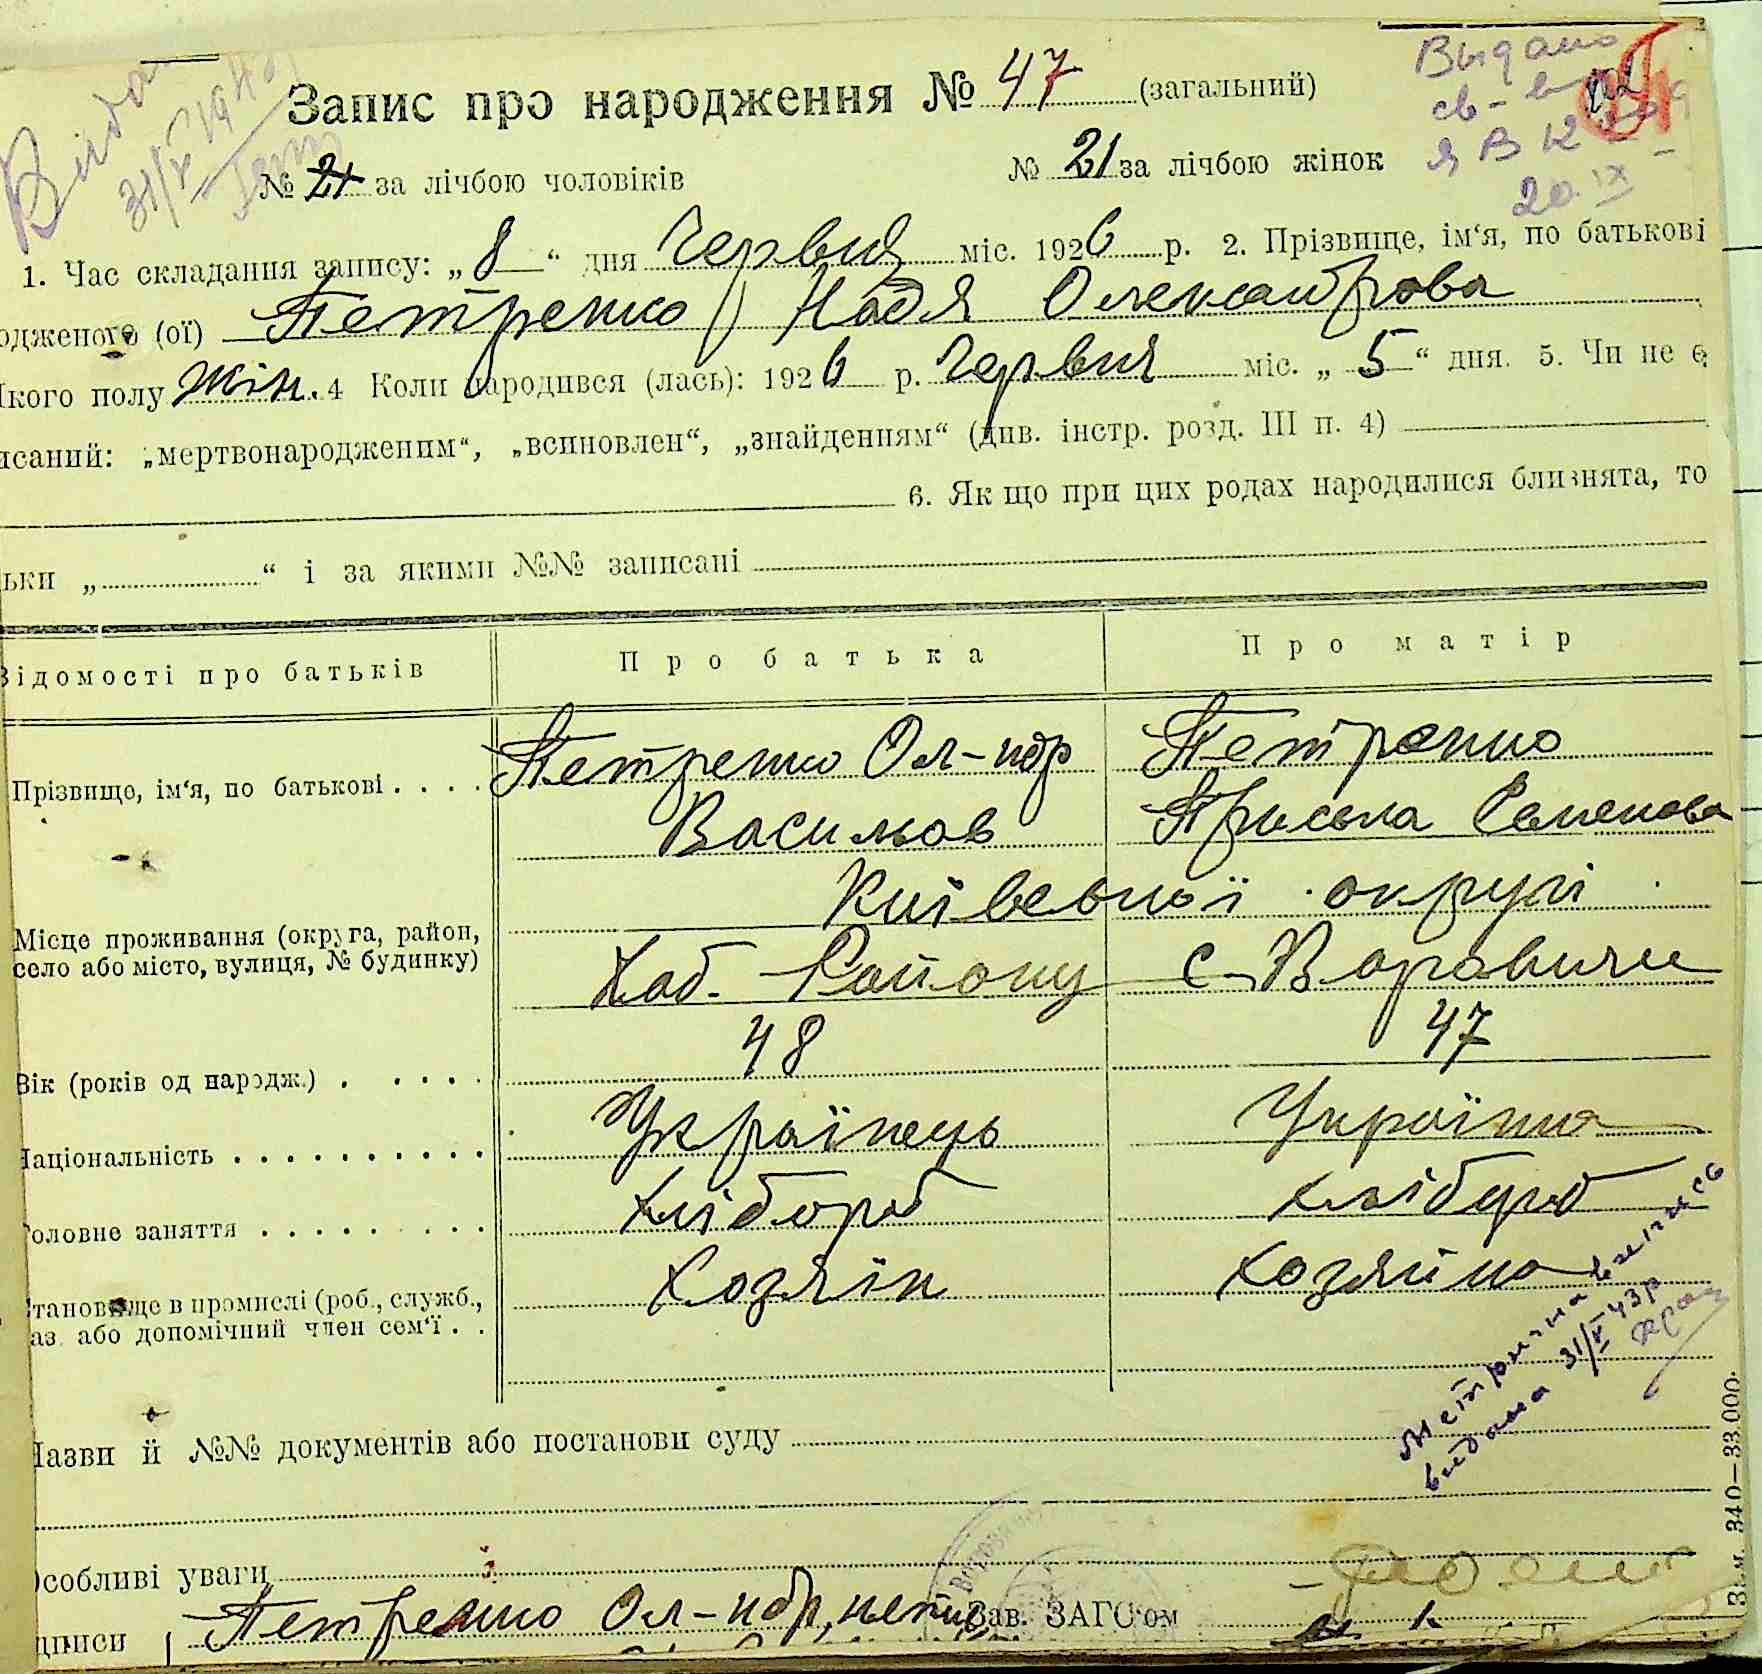 Видано
31/V 194
Запис про народження № 47 (загальний)
Выдано
св-в
ЯВ
20.IX
№ 21 за лічбою чоловіків № 21 за лічбою жінок
1. Час складання запису: „8“ дня Червня міс. 1926 р. 2. Прізвище, ім‘я, по батькові
одженого (ої) Петренко Надя Олександрова
якого полу жін. 4 Коли народився (лась): 1926 р. Червня міс. „5“ дня. 5. Чи не є
исаний: „мертвонародженим“, „всиновлен“, „знайденням“ (див. інстр. розд. III п. 4)
6. Як що при цих родах народилися близнята, то
ьки „ “ і за якими №№ записані
Відомості про батьків Про батька Про матір
Прізвище, ім‘я, по батькові . . . . Петренко Ол-ндр Петренко
Васильов Приська Семенова
Київської округи
Місце проживання (округа, район,
село або місто, вулиця, № будинку) Хаб. Району с. Варовичи
Вік (років од народж.) . . . . . 48 47
Національність . . . . . . . . . . Українець Українка
Головне заняття . . . . . . . . Хлібороб хлібороб
Становище в промислі (роб., служб., Хозяїн Хозяйка
аз. або допомічний член сем‘ї . .
Метрична випись
видана 31/V 43р
Назви й №№ документів або постанови суду
Особливі уваги
дписи Петренко Ол-ндр, Зав. ЗАГС‘ом
Зам. 340—33.000.